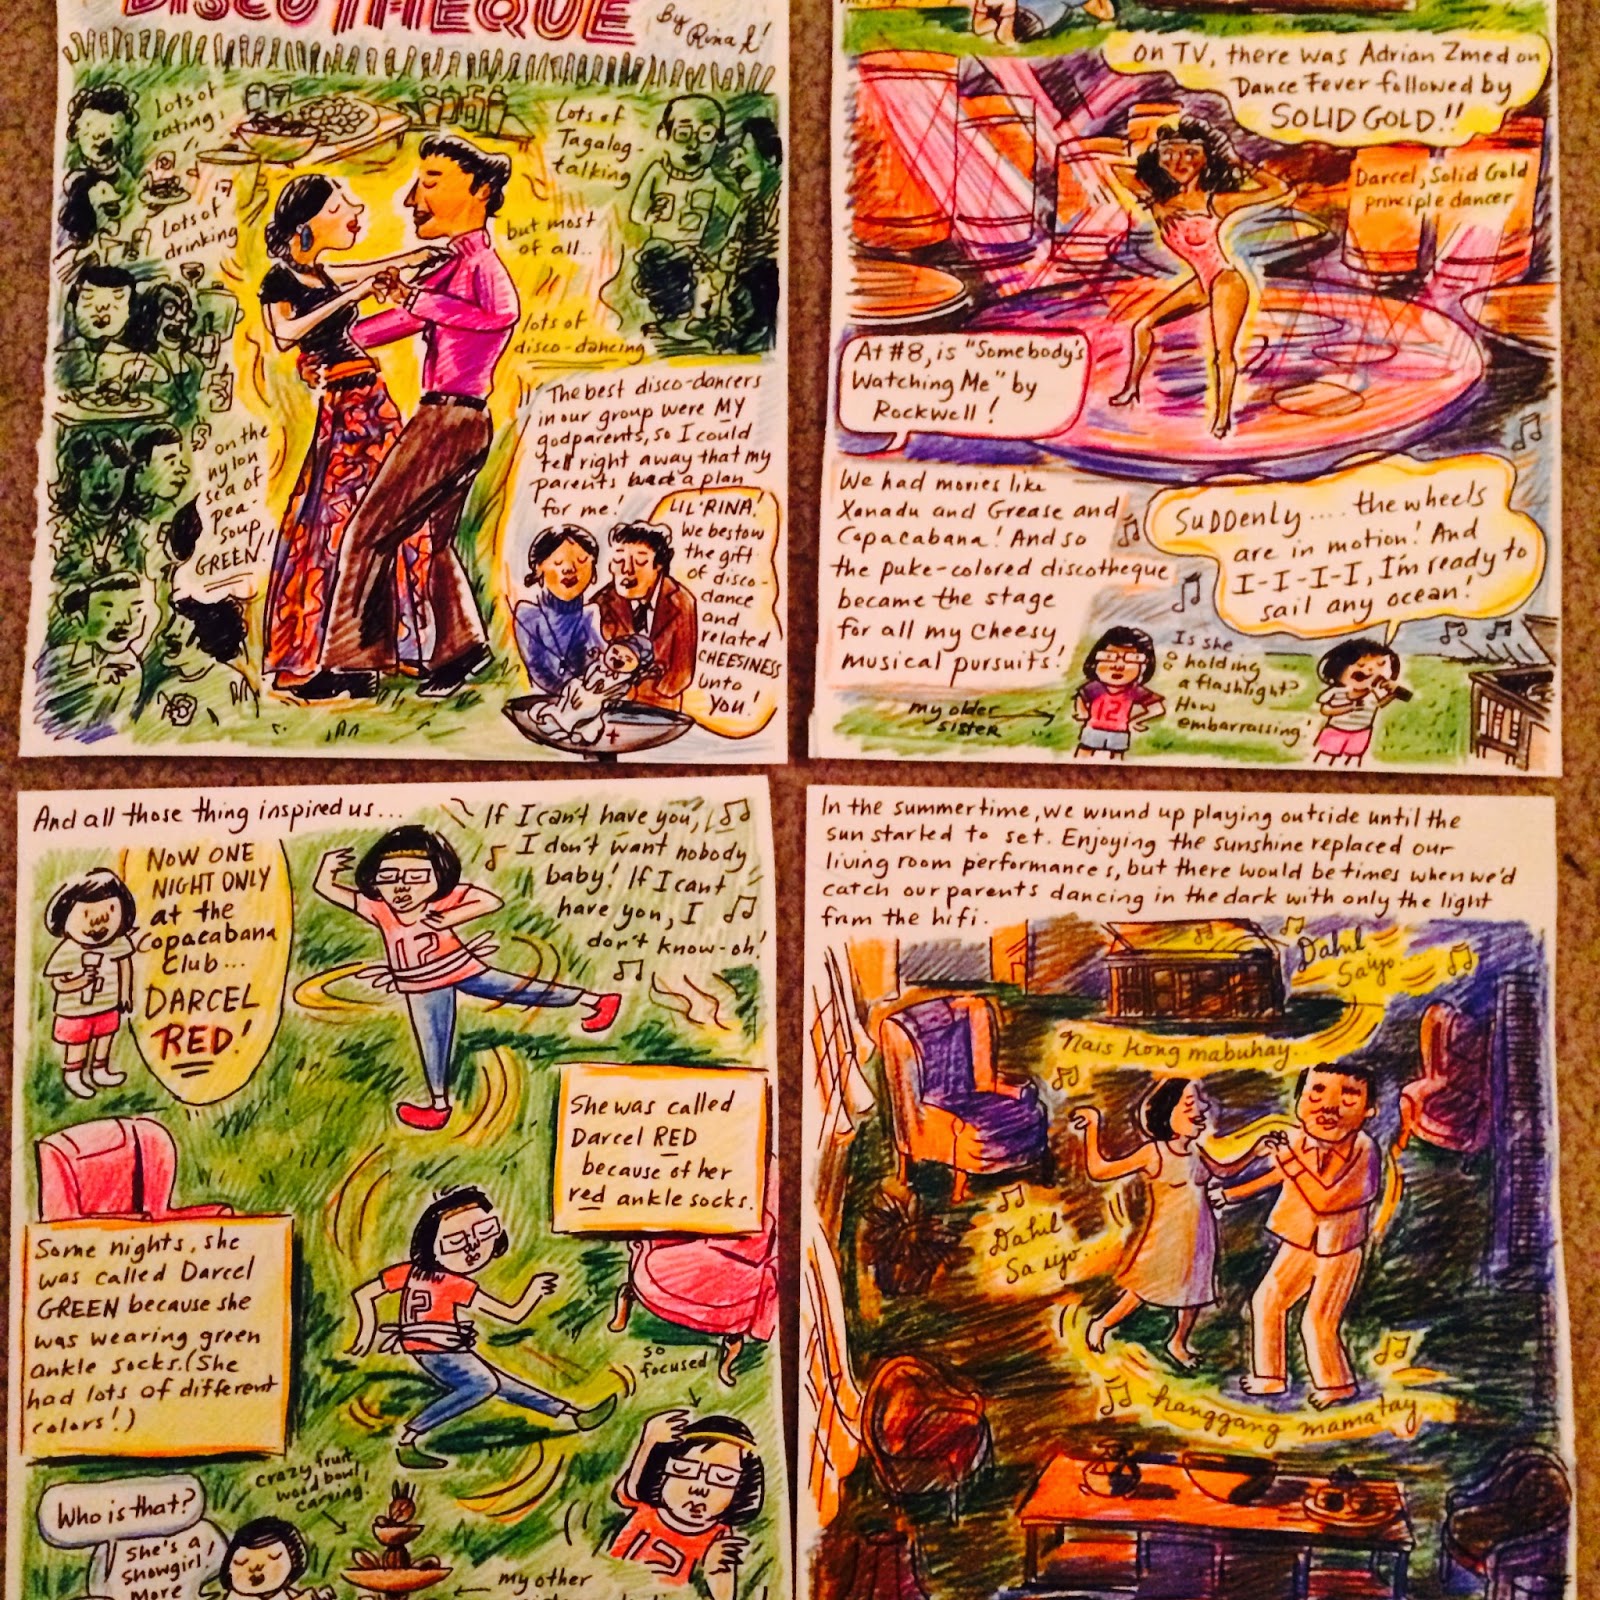 DISCOTHEQUE
By
Rina
lots of
eating,
Lots of
drinking
on the
nylon
sea of
pea-
soup
GREEN!!
Lots of
Tagalog-
talking
but most
of all..
lots of
disco-dancing
The best disco-dancers
in our group were MY
godparents, so I could
tell right away that my
parents had a plan
for me!
LIL' RINA!
We bestow
the gift
of disco-
dance
and
related
CHEESINESS
unto
YOU!
ON TV, there was Adrian Zmed on
Dance Fever followed by
SOLID GOLD!!
Darcel, Solid Gold
principle dancer
At #8, is "Somebody's
Watching Me" by
Rockwell!
We had movies like
Xanadu and Grease and
Copacabana! And so
the puke-colored discotheque
became the stage
for all my cheesy
musical pursuits!
SUDDENLY.... the wheels
are in motion! And
I-I-I-I-I, I'm ready to
sail any ocean!
my older
sister
Is she
holding
a flashlight?
How
embarrassing!
And all those thing inspired us...
NOW ONE
NIGHT ONLY
at the
Copacabana
Club...
DARCEL
RED!
If I can't have you,
I don't want nobody
baby! If I cant
have you, I
don't know-oh!
She was called
Darcel RED
because of her
red ankle socks.
Some nights, she
was called Darcel
GREEN because she
was wearing green
ankle socks. (She
had lots of different
colors!)
so
focused
crazy fruit
wood bowl
carving!
Who is that?
She's a
Showgirl!
More
my other
In the summertime, we wound up playing outside until the
sun started to set. Enjoying the sunshine replaced our
living room performances, but there would be times when we'd
catch our parents dancing in the dark with only the light
from the hifi.
Dahil
Saiyo...
Nais kong mabuhay...
Dahil
Sa iyo...
hanggang mamatay...